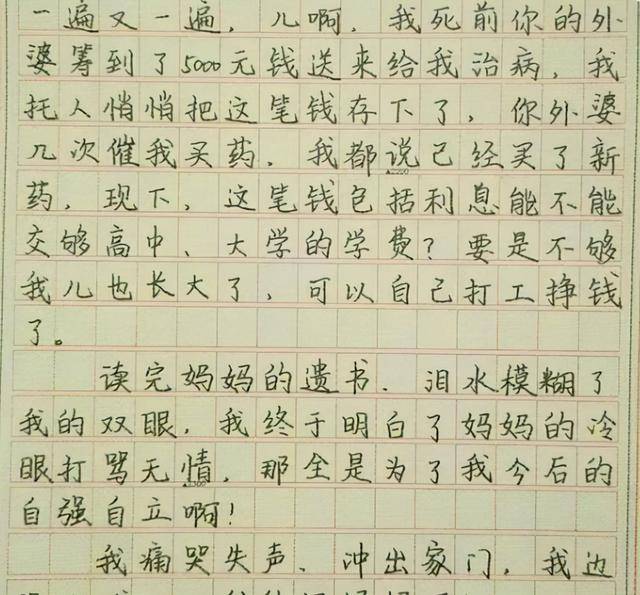 一遍又一遍，儿啊，我死前你的外
婆筹到了5000元钱送来给我治病，我
托人悄悄把这笔钱存下了，你外婆
几次催我买药，我都说已经买了新
药，现下，这笔钱包括利息能不能
交够高中、大学的学费？要是不够
我儿也长大了，可以自己打工挣钱
了。
读完妈妈的遗书，泪水模糊了
我的双眼，我终于明白了妈妈的冷
眼打骂无情，那全是为了我今后的
自强自立啊！
我痛哭失声、冲出家门，我边